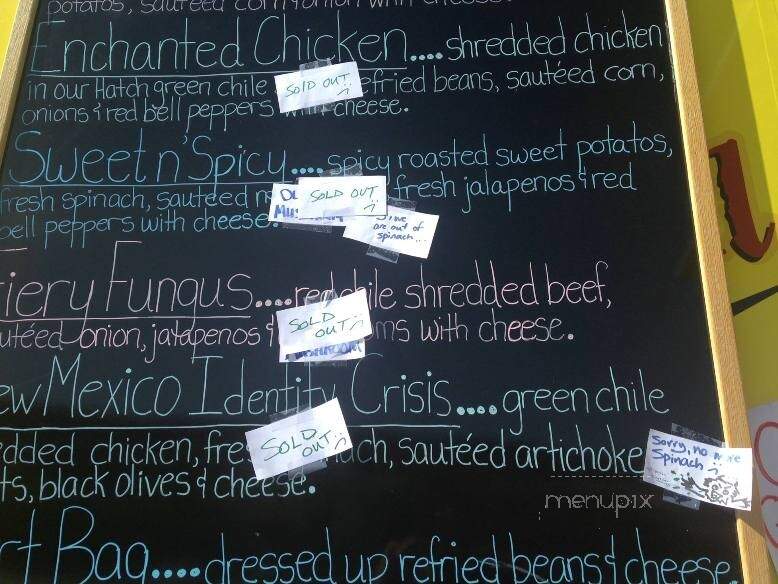 potatos, sautéed corn, onion with cheese
Enchanted Chicken.... shredded chicken
in our Hatch green chile SOLD OUT refried beans, sautéed corn,
onions & red bell peppers with cheese.
Sweet n' Spicy.... spicy roasted sweet potatos,
fresh spinach, sautéed SOLD OUT fresh jalapenos & red
bell peppers with cheese.
We are out of spinach...
iery Fungus.... red chile shredded beef,
utéed onion, jalapenos SOLD OUT ms with cheese.
ew Mexico Identity Crisis.... green chile
edded chicken, fre SOLD OUT ach, sautéed artichoke
Sorry, no more Spinach
ts, black olives & cheese.
menupix
rt Bag.... dressed up refried beans & cheese